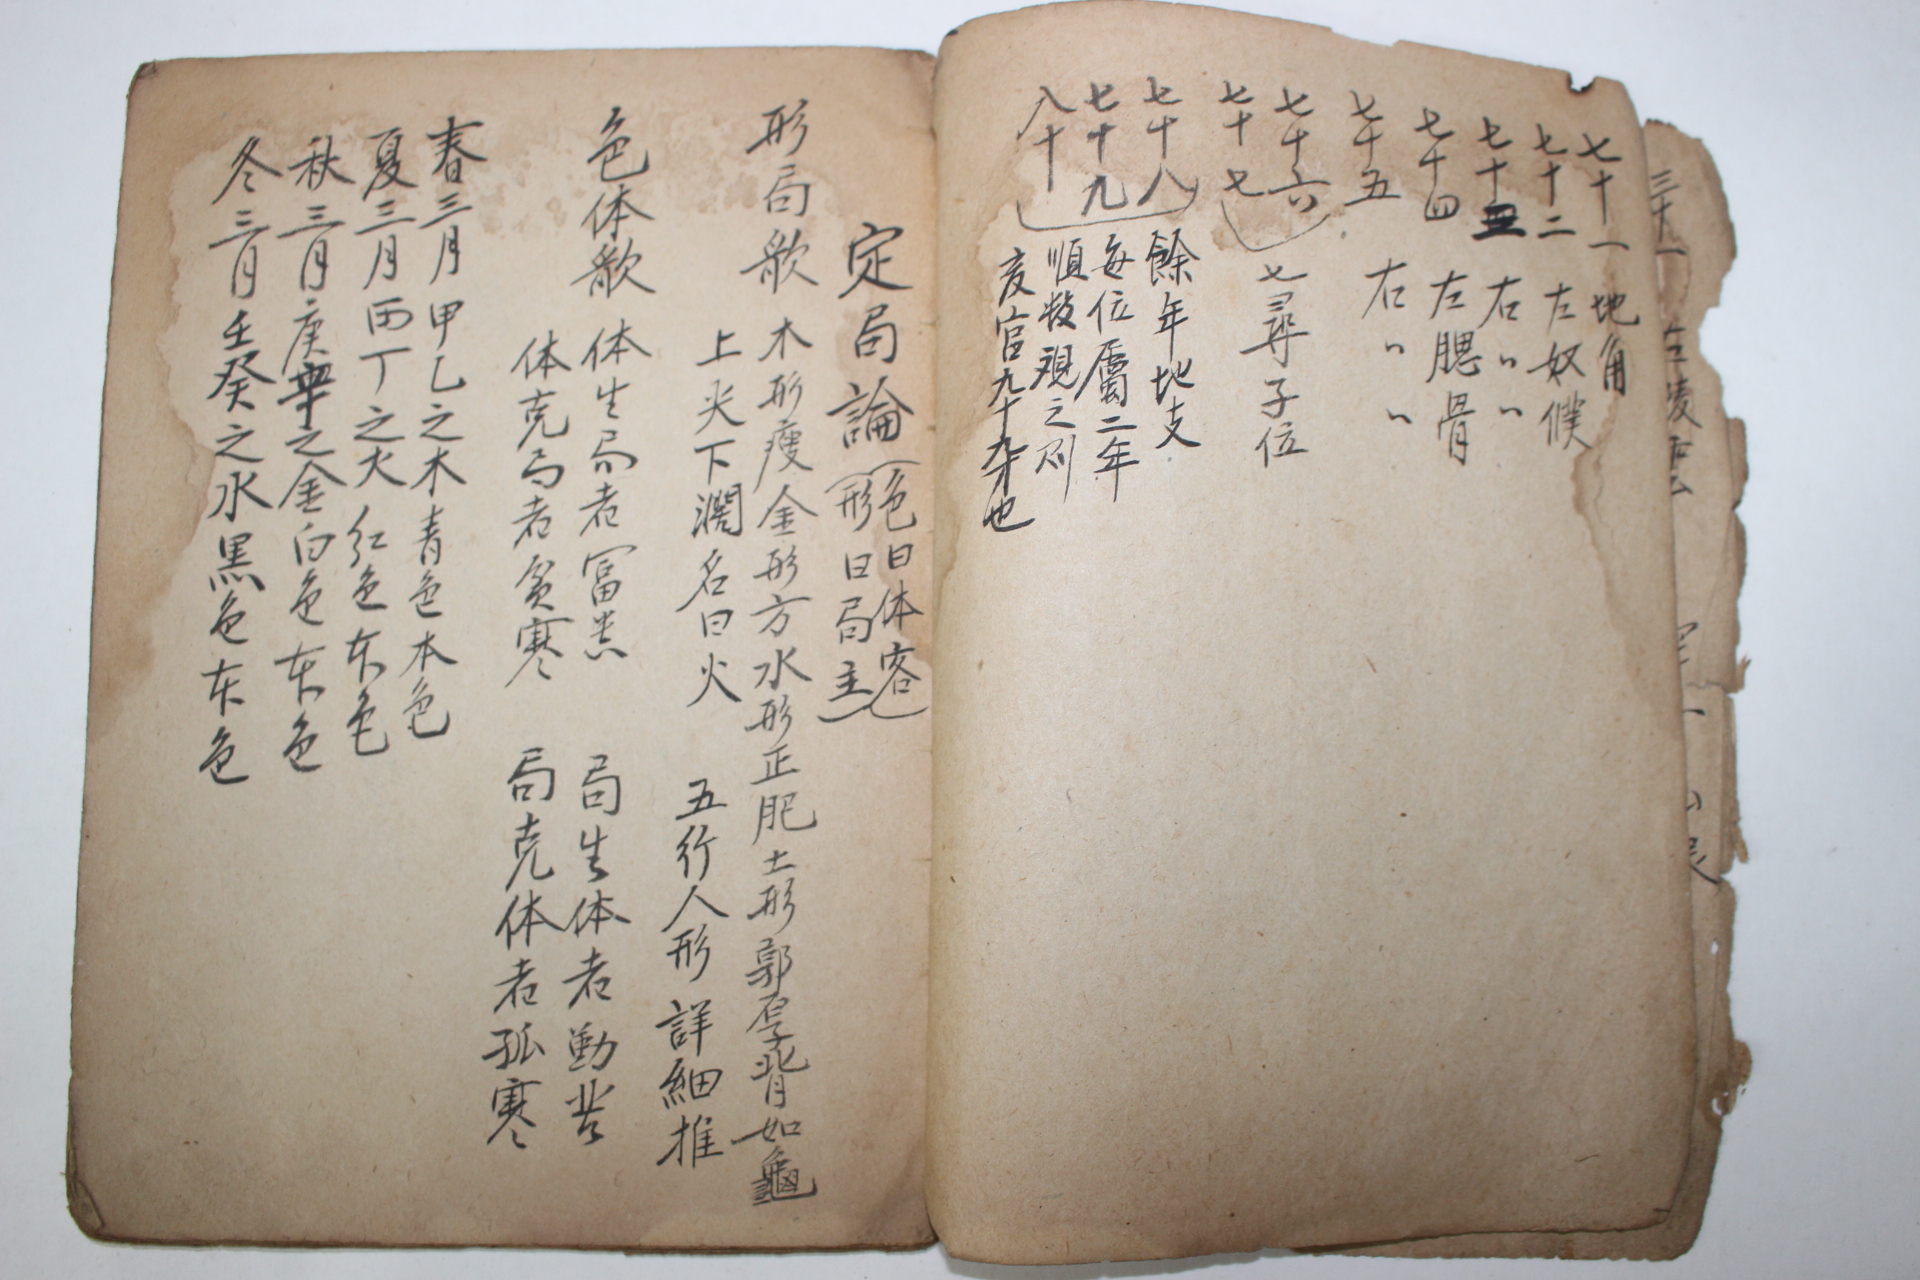 七十一 地角
七十二 左奴僕
七十三 右〃〃
七十四 左腮骨
七十五 右〃〃
七十六
七十七
七尋子位
七十八
七十九
八十
餘年地支
每位屬二年
順数視之則
亥宮九十九才也
定局論
色曰体客
形曰局主
形局歌 木形瘦金形方水形正肥土形郭厚背如龜
上尖下濶名曰火 五行人形詳細推
色体歌 体生局者冨貴 局生体者勤苦
体克局者貧寒 局克体者孤寒
春三月甲乙之木青色本色
夏三月丙丁之火紅色本色
秋三月庚辛之金白色本色
冬三月壬癸之水黒色本色
三十一 左陵